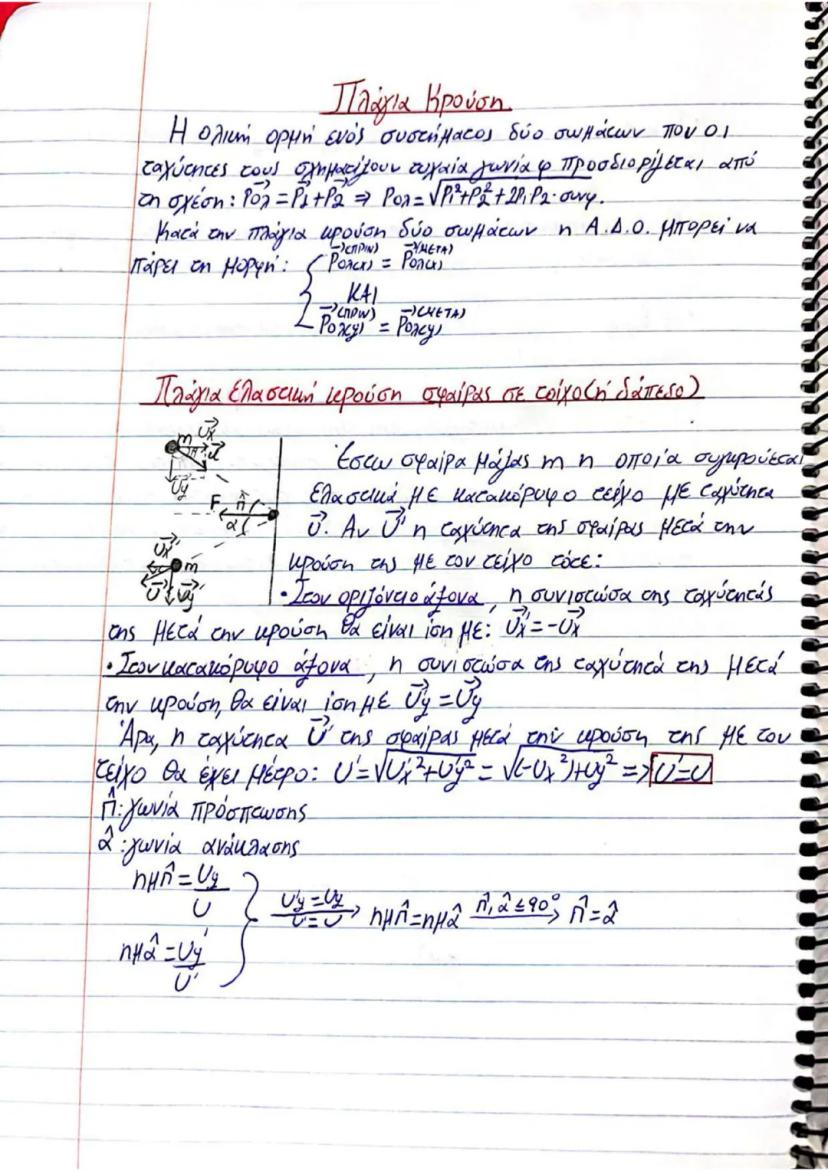 Πλάγια Κρούση
Η ολική ορμή ενός συστήματος δύο σωμάτων που οι
ταχύτητες τους σχηματίζουν τυχαία γωνία φ προσδιορίζεται από
τη σχέση: P⃗ολ = P⃗1 + P⃗2 ⇒ Pολ = √P1² + P2² + 2P1P2·συνφ.
Κατά την πλάγια κρούση δύο σωμάτων η Α.Δ.Ο. μπορεί να
πάρει τη μορφή: { P⃗ολ(x)(ΠΡΙΝ) = P⃗ολ(x)(ΜΕΤΑ)
ΚΑΙ
P⃗ολ(y)(ΠΡΙΝ) = P⃗ολ(y)(ΜΕΤΑ)
Πλάγια ελαστική κρούση σφαίρας σε τοίχο (ή δάπεδο)
m U⃗x
π̂ U⃗
U⃗y
F π̂
α̂
U⃗x'
m
U⃗' U⃗y'
Έστω σφαίρα μάζας m η οποία συγκρούεται
ελαστικά με κατακόρυφο τείχο με ταχύτητα
U⃗. Αν U⃗' η ταχύτητα της σφαίρας μετά την
κρούση της με τον τείχο τότε:
• Στον οριζόντιο άξονα, η συνιστώσα της ταχύτητάς
της μετά την κρούση θα είναι ίση με: U⃗x' = -U⃗x
• Στον κατακόρυφο άξονα, η συνιστώσα της ταχύτητά της μετά
την κρούση, θα είναι ίση με U⃗y' = U⃗y
Άρα, η ταχύτητα U⃗' της σφαίρας μετά την κρούση της με τον
τείχο θα έχει μέτρο: U' = √Ux'² + Uy'² = √(-Ux²) + Uy² => U' = U
π̂: γωνία πρόσπτωσης
α̂: γωνία ανάκλασης
ημπ̂ = Uy/U
Uy' = Uy
U' = U → ημπ̂ = ημα̂ π̂, α̂ ≤ 90° → π̂ = α̂
ημα̂ = Uy'/U'